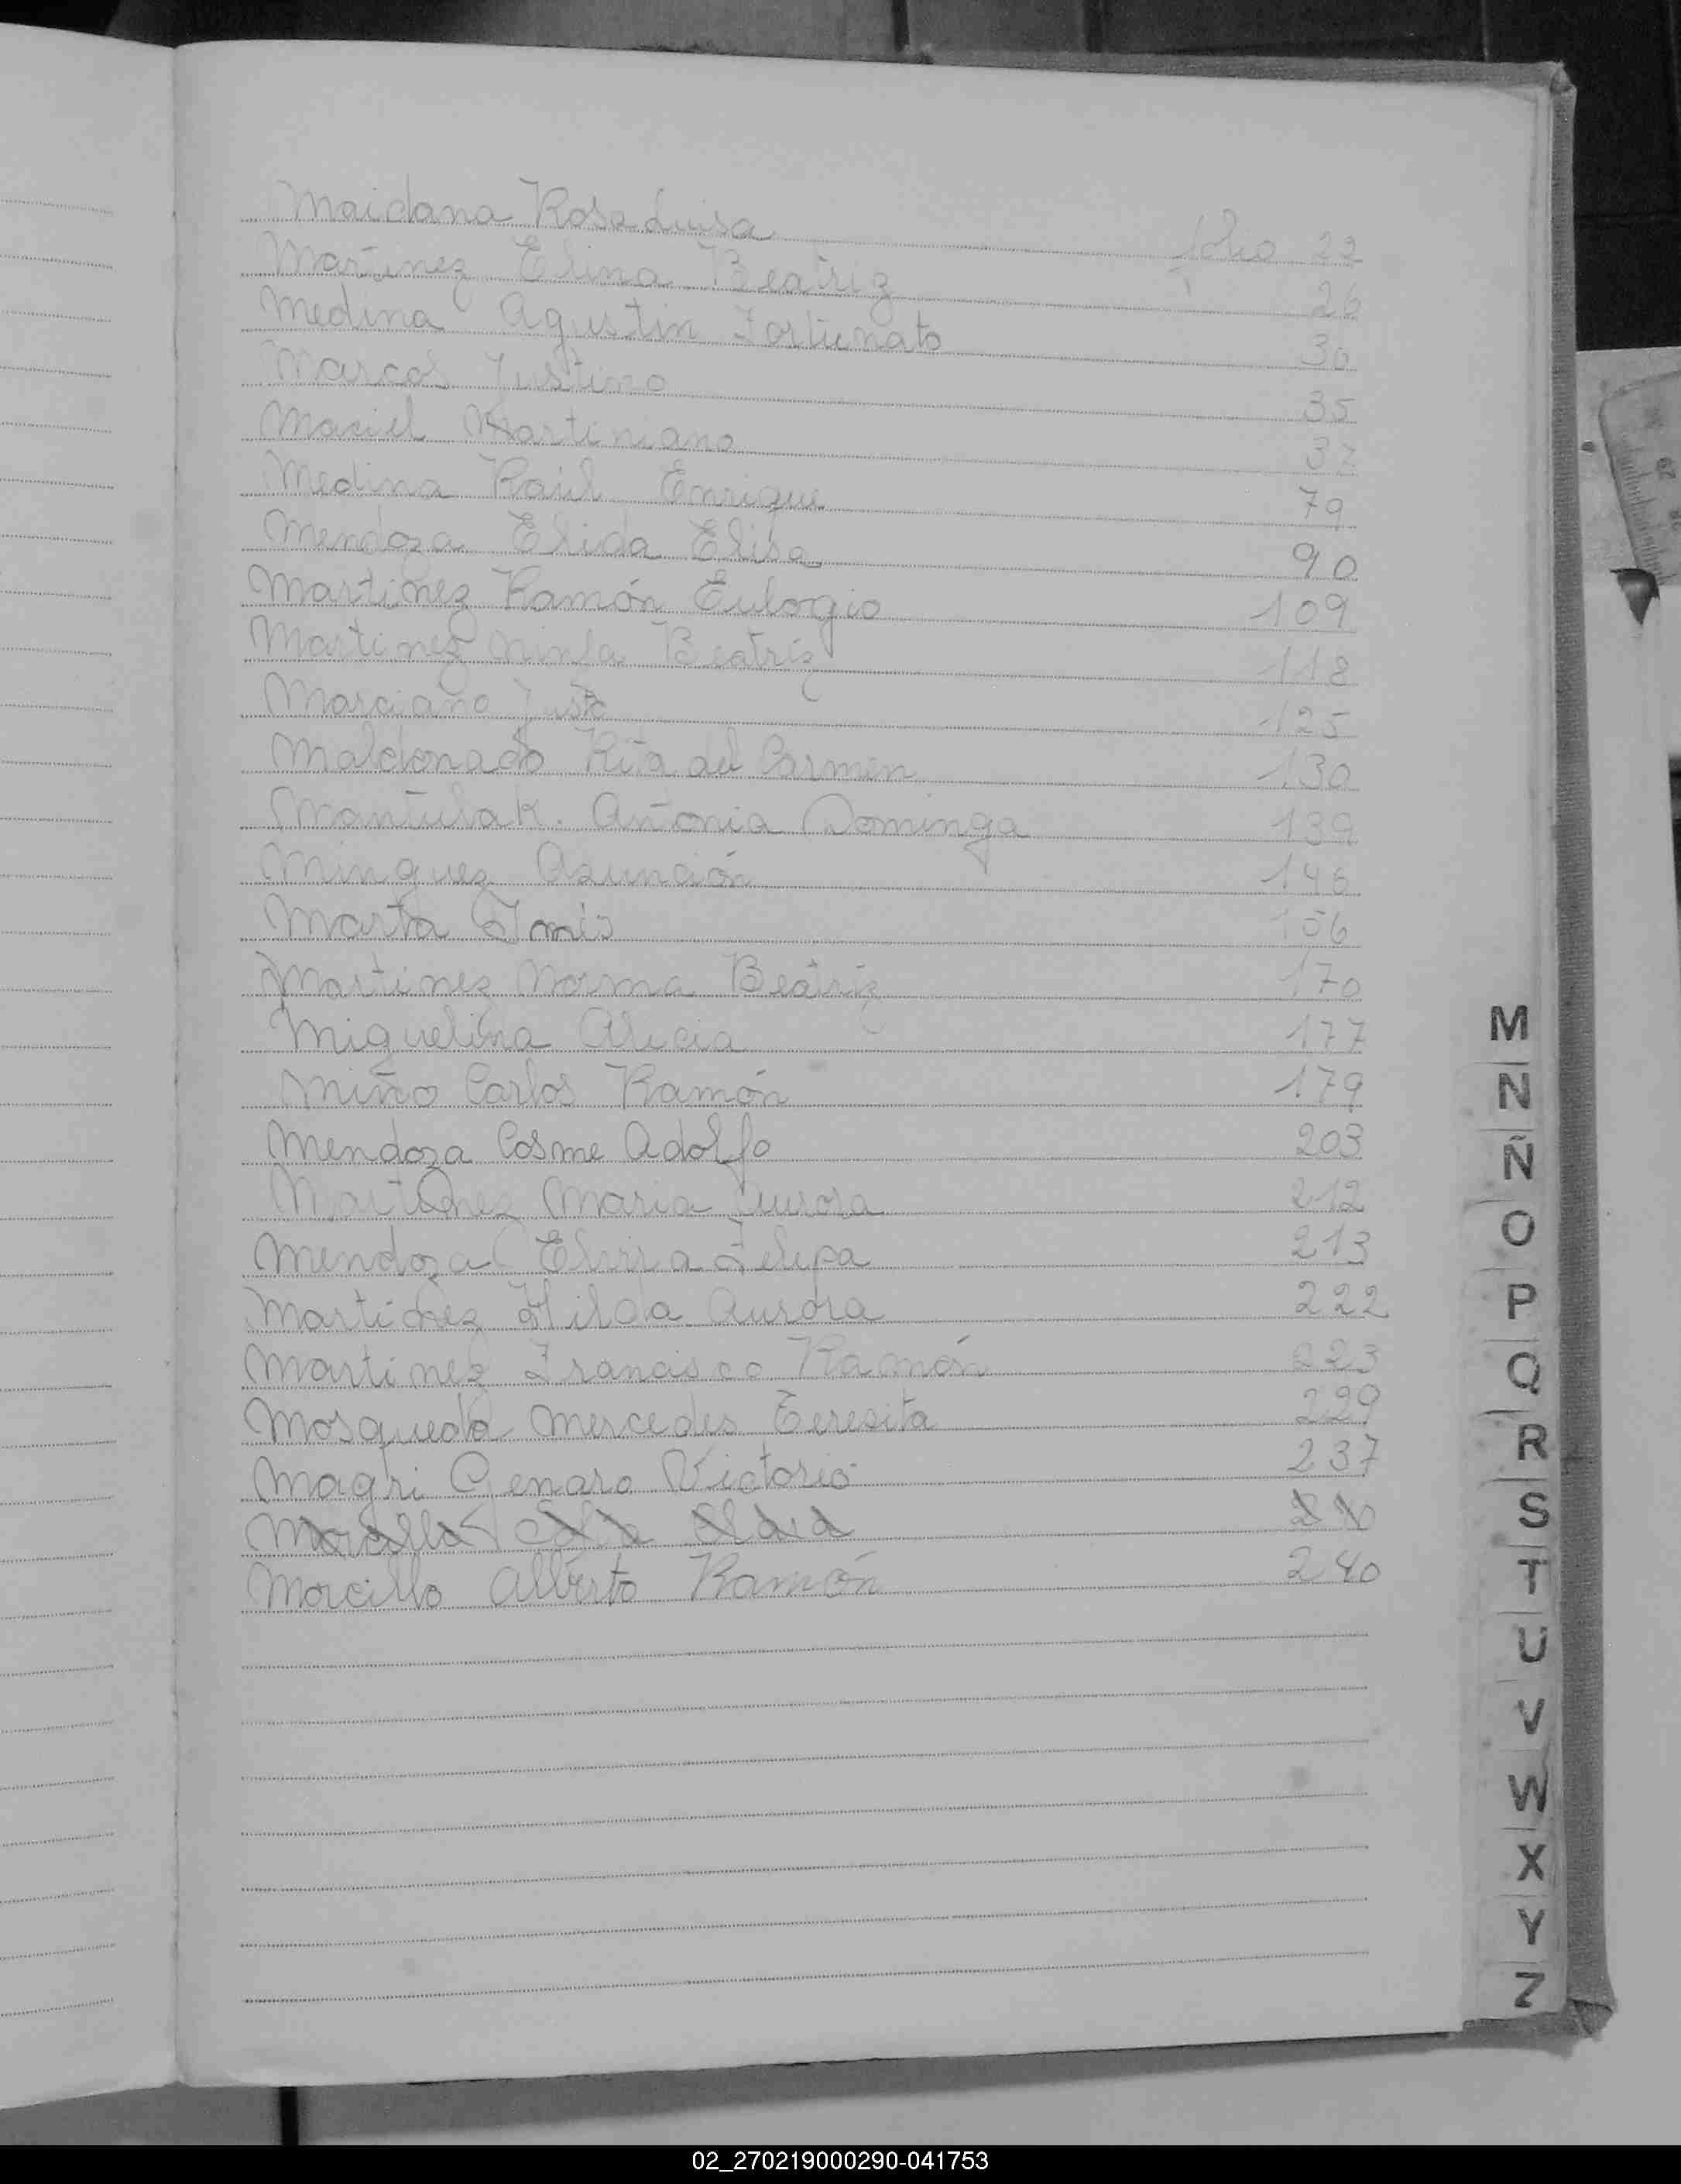 Maidana Rosa Luisa folio 22
Martínez Elina Beatriz 26
Medina Agustin Fortunato 30
Marcos Justino 35
Maciel Martiniano 37
Medina Raúl Enrique 79
Mendoza Elida Elisa 90
Martinez Ramón Eulogio 109
Martinez Ninfa Beatríz 118
Marciano Justo 125
Maldonado Rita del Carmen 130
Mantulak. Antonia Dominga 139
Minguez Asunción 146
Marta Inés 156
Martinez Norma Beatríz 170
Miguelina Alicia 177
Miño Carlos Ramón 179
Mendoza Cosme Adolfo 203
Martinez Maria Aurora 212
Mendoza Elvira Felipa 213
Martinez Hilda Aurora 222
Martinez Francisco Ramón 223
Mosqueda Mercedes Teresita 229
Magri Genaro Victorio 237
Morcillo Alberto Ramón 240
M
N
Ñ
O
P
Q
R
S
T
U
V
W
X
Y
Z
02_270219000290-041753